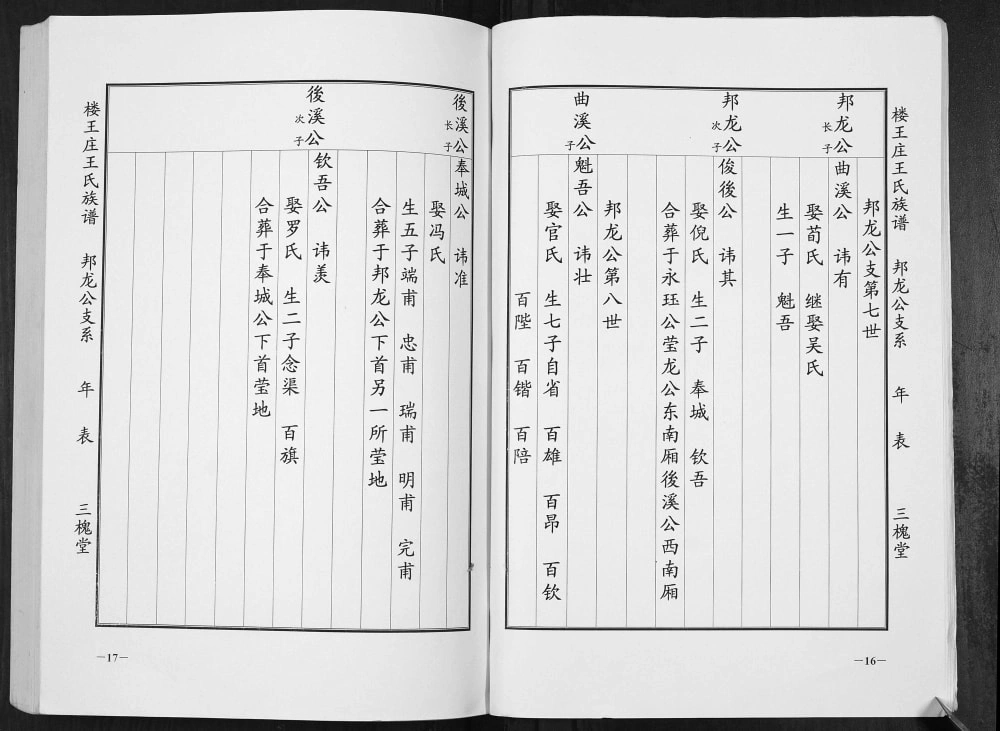 楼王庄王氏族谱 邦龙公支系 年表 三槐堂
邦龙公支第七世
邦龙公
长子
曲溪公 讳有
娶荀氏 继娶吴氏
生一子 魁吾
邦龙公
次子
俊後公 讳其
娶倪氏 生二子 奉城 钦吾
合葬于永珏公莹龙公东南厢後溪公西南厢
邦龙公第八世
曲溪公
子
魁吾公 讳壮
娶官氏 生七子自省 百雄 百昂 百钦
百陛 百锴 百陪
—16—
後溪公
长子
奉城公 讳准
娶冯氏
生五子端甫 忠甫 瑞甫 明甫 完甫
合葬于邦龙公下首另一所莹地
後溪公
次子
钦吾公 讳羡
娶罗氏 生二子念渠 百旗
合葬于奉城公下首莹地
楼王庄王氏族谱 邦龙公支系 年表 三槐堂
—17—